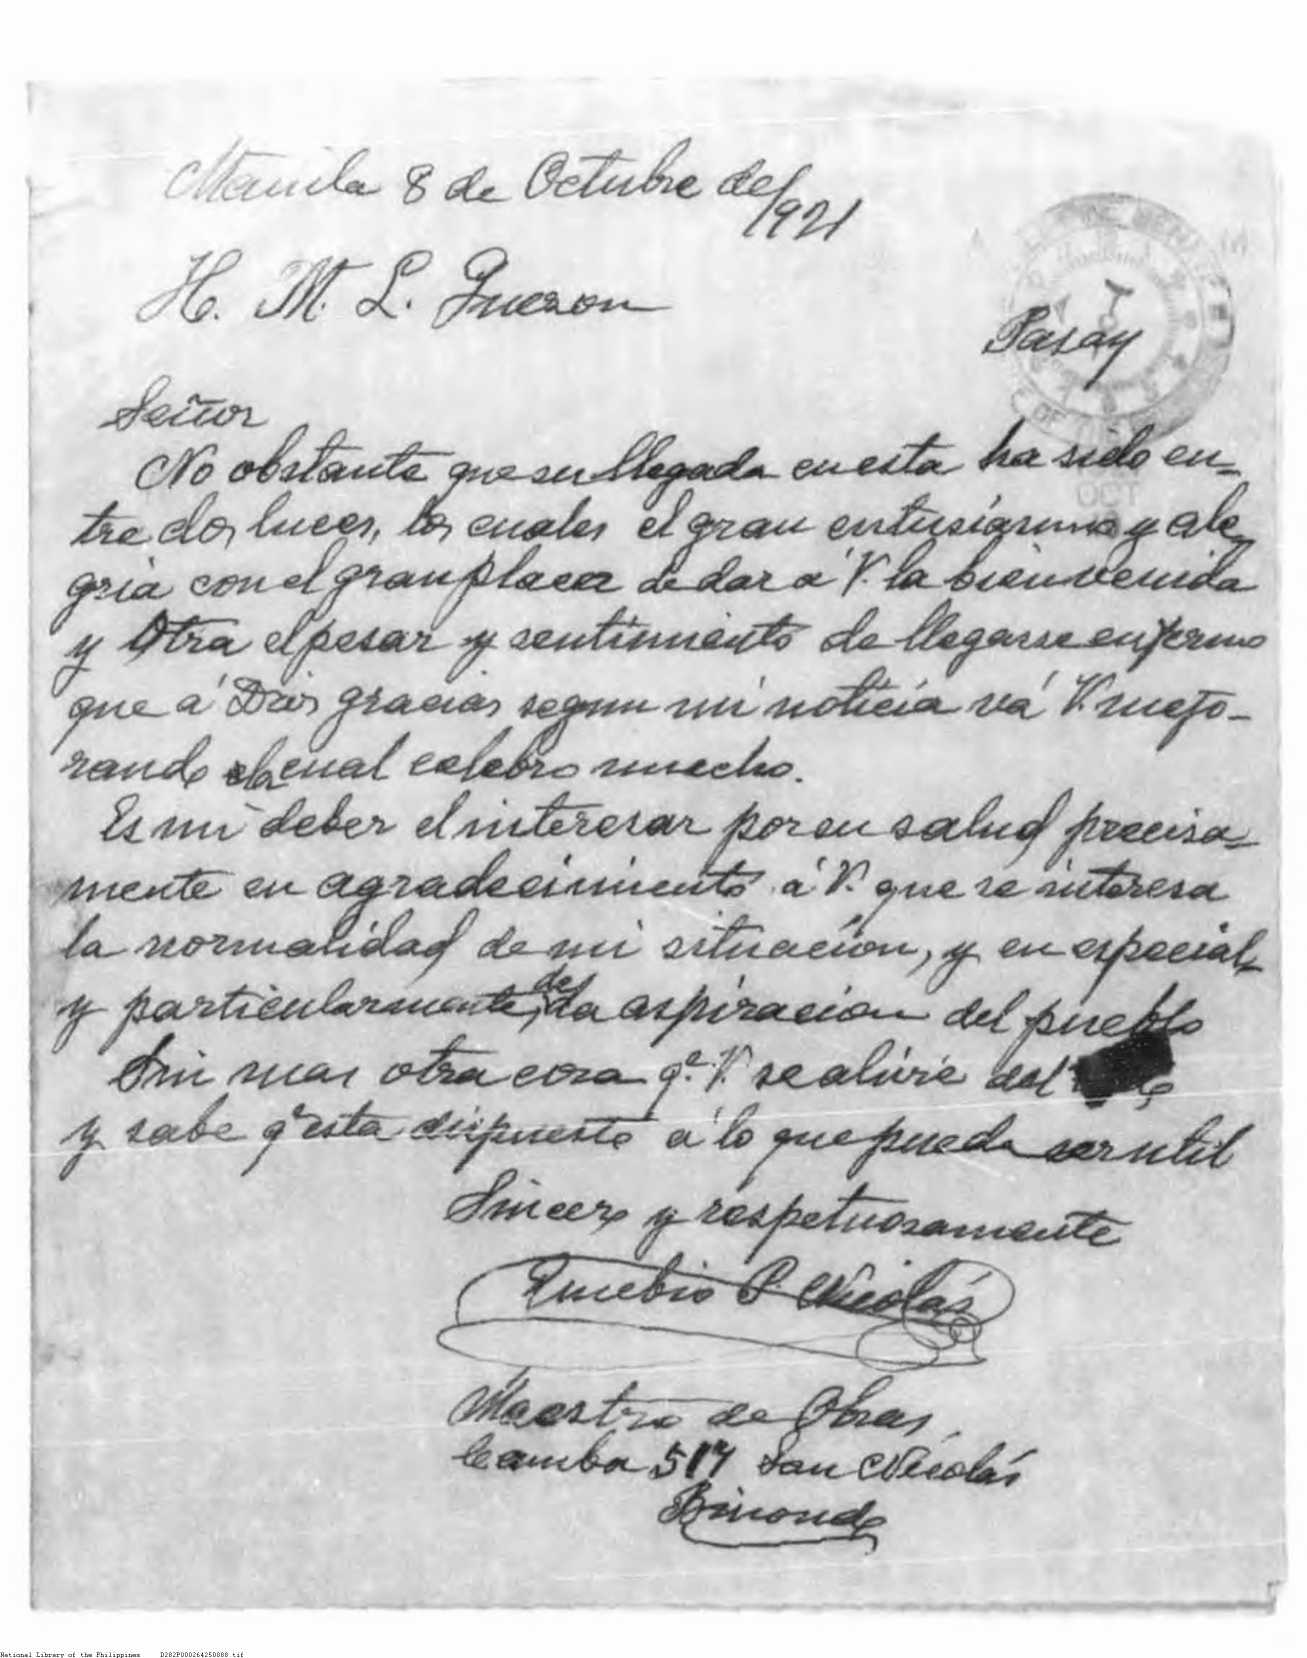 Manila 8 de Octubre de/1921
H. M. L. Quezon
Pasay
OCT
Señor
No obstante que su llegada en esta ha sido en=
tre dos luces, los cuales el gran entusiasmo y ale=
gria con el gran placer de dar á V. la bienvenida
y Otra el pesar y sentimiento de llegarse enfermo
que á Dios gracias segun mi noticia vá V. mejo-
rando cual celebro mucho.
Es mi deber el interesar por su salud precisa=
mente en agradecimiento á V. que se interesa
la normalidad de mi situación, y en especial
y particularmente, de la aspiracion del pueblo
Sin mas otra cosa q.e V. se alivie del
y sabe q.e esta dispuesto á lo que pueda ser util
Sincero y respetuosamente
Eusebio P. Nicolás
Maestro de Obras,
Camba 517 San Nicolás
Binondo
National Library of the Philippines D282P000264250888.tif